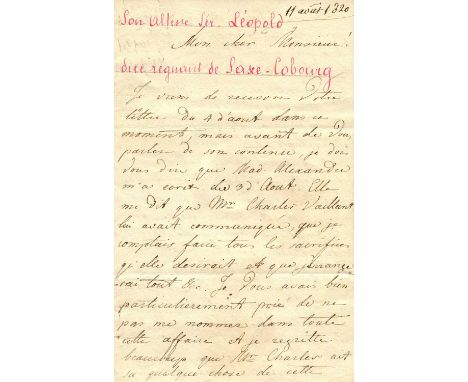 11 août 1820
Son Altesse Sér. Léopold
Mon cher Monsieur!
duc régnant de Saxe-Cobourg
Je viens de recevoir Votre
lettre du 4 d'aout dans ce
moment, mais avant de Vous
parler de son contenu, je dois
Vous dire que Mad Alexandre
m'a ecrit du 3 d'Aout. Elle
me dit que Mr. Charles Vaillant
lui avait communiqué, que je
comptais faire tous les sacrifices
qu'elle desirait et que j'arrange
rai tout &c. Je Vous avais bien
particulierement prié de ne
pas me nommer dans toute
cette affaire et je regrette
beaucoup que Mr Charles ait
su quelque chose de cette